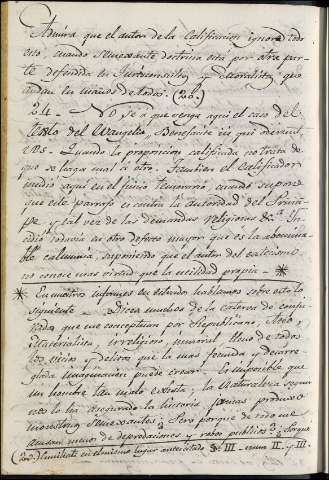 Admira que el autor de la Calificacion ignore todo
eso, cuando semexante doctrina está por otra par-
te defendida en Jurisconsultos y Moralistas que
andan en manos de todos. (22.)
24 - No sé a que venga aqui el caso del
texto del Evangelio, Benefacite iis qui oderunt
vos - Quando la proposicion calificada no trata de
que se haga mal a otro. Tambien el Calificador
incidió aqui en el juicio temerario, cuando supone
que este parrafo es contra la autoridad del
y tal vez de las demandas religiosas &c. In-
cidió todavia en otro defecto mayor que es la abomina-
ble calumnia, suponiendo que el autor del catecismo
no conoce mas virtud que la utilidad propia - *
* En nuestros informes en estrados hablamos sobre esto lo
siguiente - Dicen muchos de la caterva de
que me conceptuan por Republicano, Ateo,
Materialista, irreligioso, inmoral, lleno de todos
los vicios y delitos que la mas fecunda y desarre-
glada imaginacion puede crear. Es imposible que
un hombre tan malo exista, la Naturaleza segun
nos lo ha asegurado la historia jamas produxo
monstruos semexantes. Pero porque de todo me
acusan menos de depredaciones y robos publicos? Porque
(22.) en el mismo lugar III. num. II. y III.